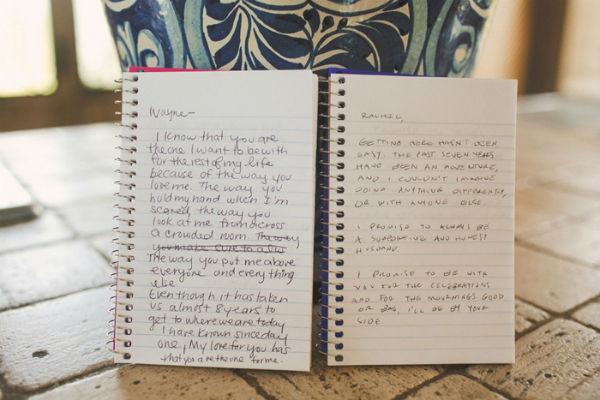 Wayne-
I know that you are
the one I want to be with
for the rest of my life
because of the way you
love me. The way you
hold my hand when I'm
scared, the way you
look at me from across
a crowded room. The way
you make
The way you put me above
everyone and everything
else
Even though it has taken
us almost 8 years to
get to where we are today
I have known since day
one, My love for you has
that you are the one for me.
RACHEL,
GETTING HERE HASN'T BEEN
EASY. THE PAST SEVEN YEARS
HAVE BEEN AN ADVENTURE,
AND I COULDN'T IMAGINE
DOING ANYTHING DIFFERENTLY,
OR WITH ANYONE ELSE.
I PROMISE TO ALWAYS BE
A SUPPORTIVE AND HONEST
HUSBAND.
I PROMISE TO BE WITH
YOU FOR THE CELEBRATIONS
AND FOR THE MOURNINGS GOOD
OR BAD, I'LL BE BY YOUR
SIDE.